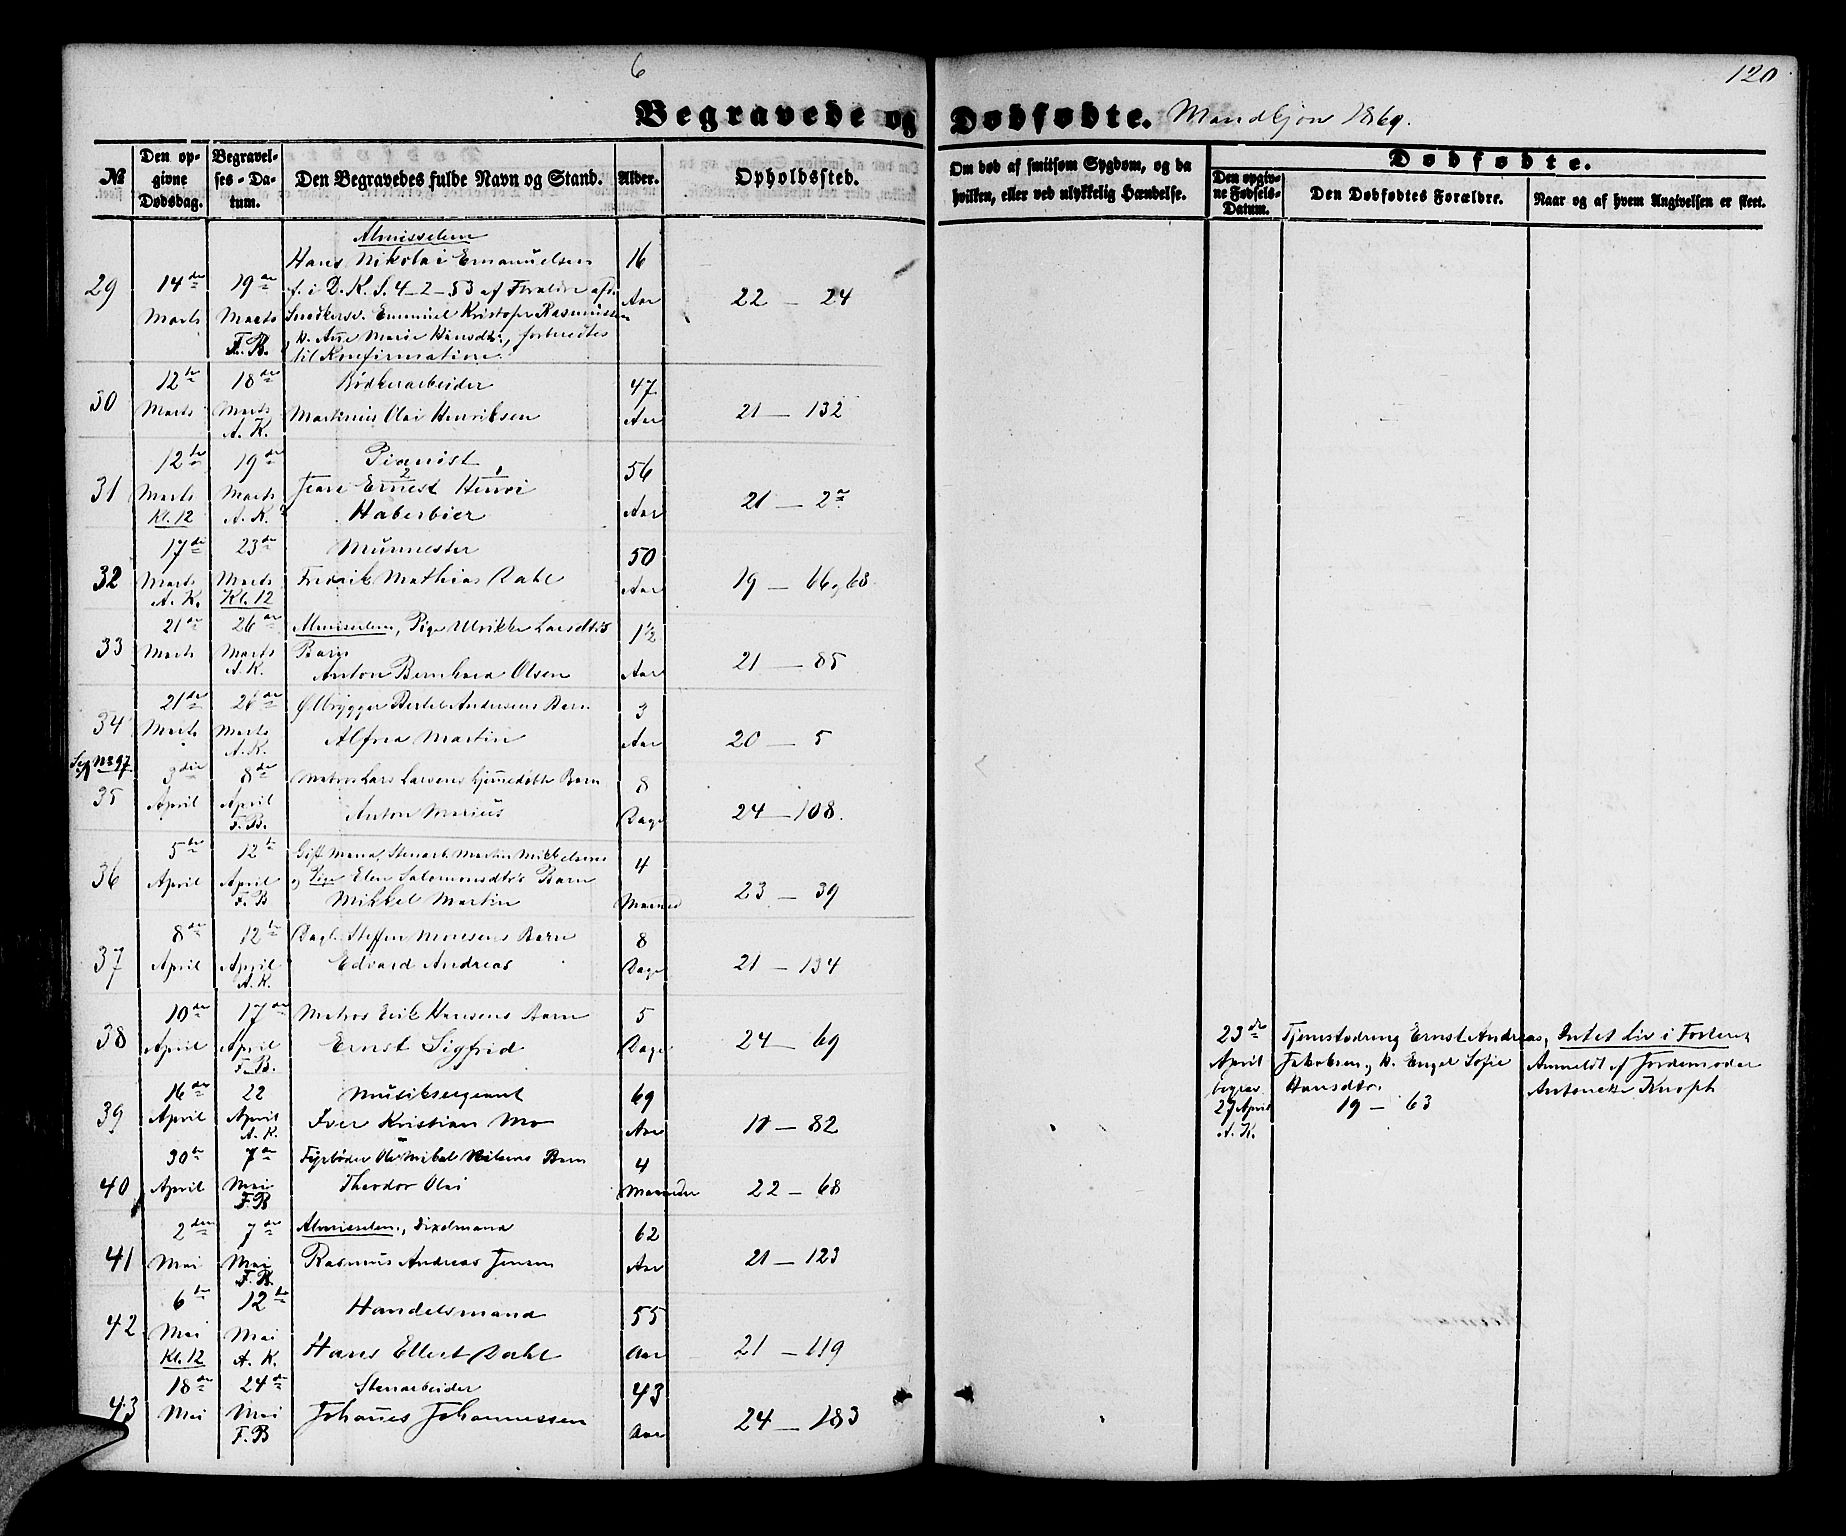 6
120
Begravede og Dødfødte. Mandkjøn 1869.
№
Den opgivne Dødsdag.
Begravelses-Datum.
Den Begravedes fulde Navn og Stand.
Alder.
Opholdssted.
Om død af smitsom Sygdom, og da hvilken, eller ved ulykkelig Hændelse.
Dødfødte.
Den opgivne Fødsels-Datum.
Den Dødfødtes Forældre.
Naar og af hvem Angivelsen er skeet.
29 14de Marts 19de Marts F. B.
Almisselem
Hans Nikolai Emanuelsen
f. i D. K. S. 4-2-53 af Forældre afd.
Snedkersv. Emanuel Kristofer Rasmussen
og H. Ane Marie Hansdtr., forberedtes
til Konfirmation.
16 Aar 22 — 24
30 12te Marts 18de Marts A. K.
Bødkerarbeider
Martinius Olai Henriksen
47 Aar 21 — 132
31 12te Marts Kl. 12 19de Marts A. K.
Pianist
Jean Ernest Henri
Haberbier
56 Aar 21 — 2a
32 17de Marts A. K. 23de Marts Kl. 12
Murmester
Fredrik Mathias Dahl
50 Aar 19 — 66, 68
33 21de Marts 26de Marts A. K.
Almisselem, Pige Ulrikke Larsdtrs
Barn
Anton Bernhard Olsen
1½ Aar 21 — 85
34 21de Marts 26de Marts A. K.
Ølbrygger Bertel Andersens Barn
Alfred Martin
3 Aar 20 — 5
Se No 97
35 3die April 8de April F. B.
Matros Lars Larsens hjemmedøbte Barn
Anton Marius
8 Dage 24 — 108.
36 5te April 12te April F. B
Gift Mand, Stenarb. Martin Mikkelsens
og Pige Elen Salomonsdtrs Barn
Mikkel Martin
4 Maaned 23 — 39
37 8de April 12te April A. K.
Dagl. Steffen Monsens Barn
Edvard Andreas
8 Dage 21 — 134
38 10de April 17de April F. B.
Matros Erik Hansens Barn
Ernst Sigfrid
5 Dage 24 — 69
39 16de April 22 April A. K.
Musiksergeant
Iver Kristian Mo
69 Aar 11 — 82
40 30te April 7de Mai F. B
Fyrbøder Ole Mikal Nilsens Barn
Theodor Olai
4 Maaneder 22 — 68
41 2den Mai 7de Mai F. B.
Almisselem, Dixelmand
Rasmus Andreas Jensen
62 Aar 21 — 123
42 6te Mai Kl. 12 12te Mai A. K.
Handelsmand
Hans Ellert Dahl
55 Aar 21 — 119
43 18de Mai 24de Mai F. B
Stenarbeider
Johannes Johannessen
43 Aar 24 — 183
23de April begrav 27 April A. K.
Tjenestedreng Ernst Andreas
Jakobsen og H. Engel Sofie
Hansdtr.
19 — 63
Intet Liv i Fosteret
Anmeldt af Jordemoder
Antonette Knoph